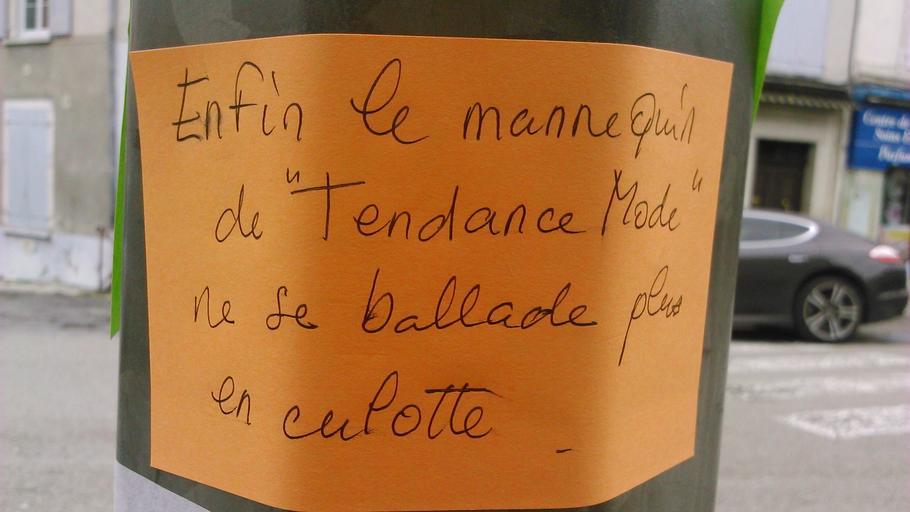 Enfin le mannequin
de "Tendance Mode"
ne se ballade plus
en culotte
Centre de
Soins
Parfum